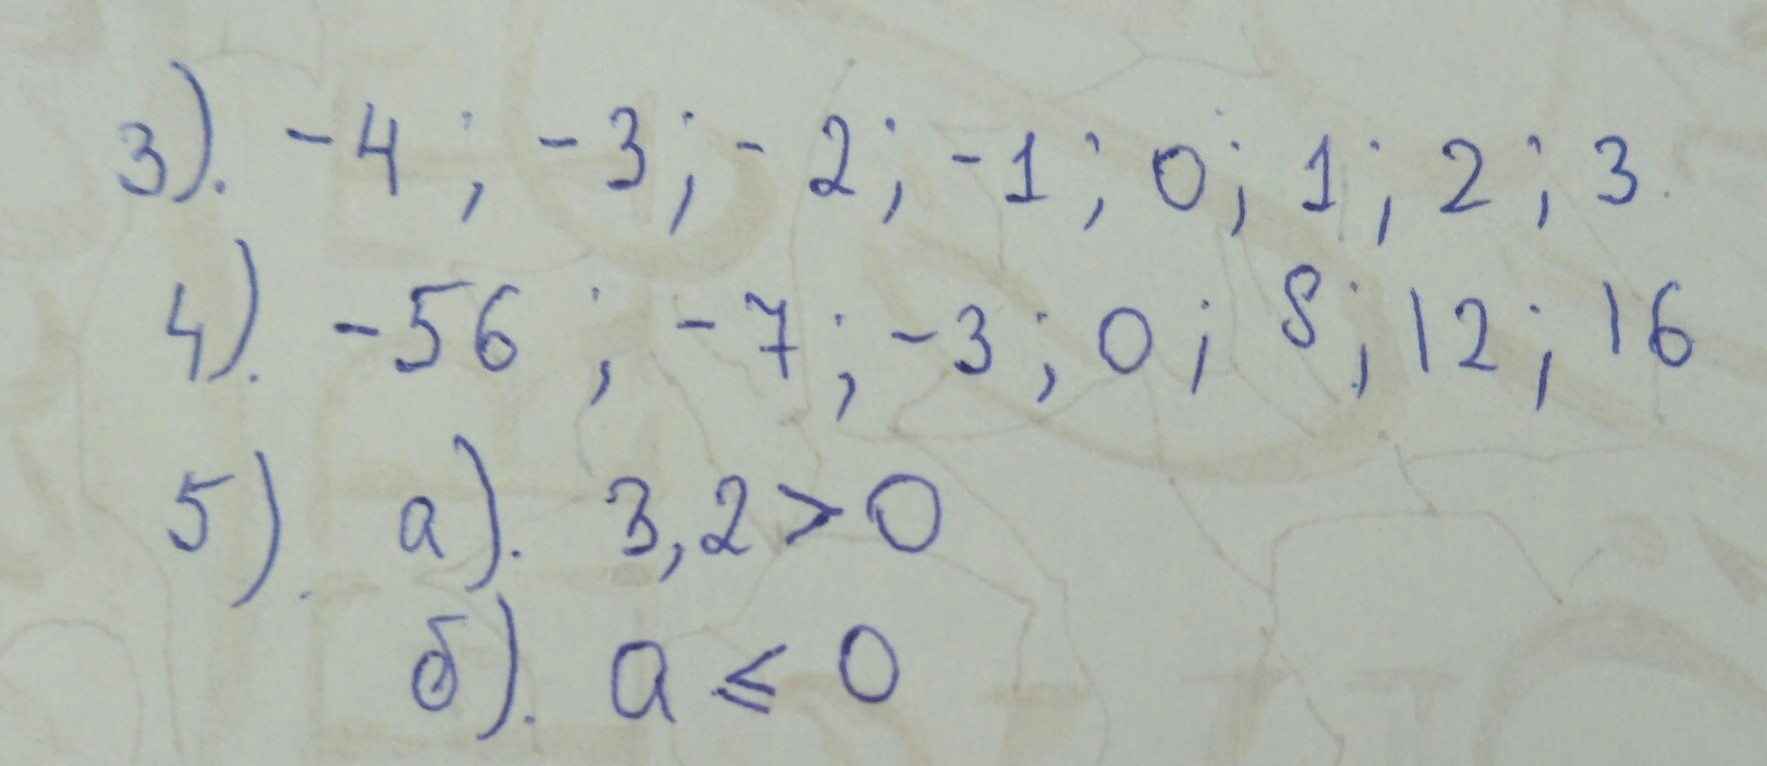 3). -4; -3; -2; -1; 0; 1; 2; 3.
4). -56; -7; -3; 0; 8; 12; 16
5). а). 3,2 > 0
б). а ⩽ 0